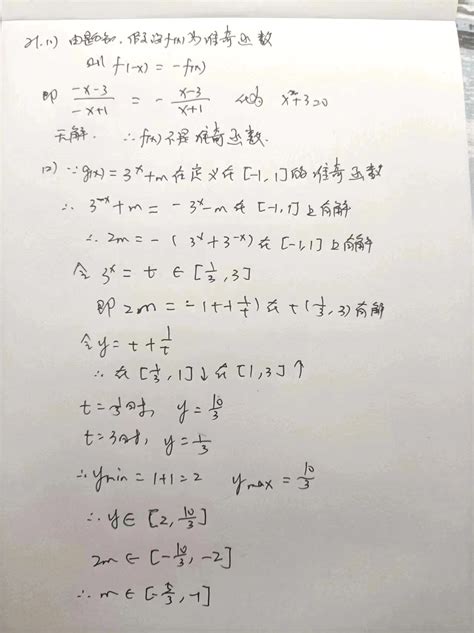 21.(1) 由题知,假设f(x)为准奇函数
则 f(-x) = -f(x)
即 \frac{-x-3}{-x+1} = -\frac{x-3}{x+1} 化简 x²+3=0
无解. ∴f(x)不是准奇函数.
(2) ∵g(x)=3^x+m在定义在[-1,1]的准奇函数
∴ 3^{-x}+m = -3^x-m 在 [-1,1]上有解
∴ 2m = -(3^x+3^{-x})在[-1,1]上有解
令3^x = t ∈ [\frac{1}{3},3]
即 2m = -(t+\frac{1}{t}) 在 t(\frac{1}{3},3)有解
令y = t+\frac{1}{t}
∴ 在[\frac{1}{3},1]↓在[1,3]↑
t=\frac{1}{3}时, y=\frac{10}{3}
t=3时, y=\frac{1}{3}
∴ymin = 1+1=2 ymax = \frac{10}{3}
∴ y∈[2,\frac{10}{3}]
2m∈[-\frac{10}{3},-2]
∴ m∈[-\frac{5}{3},-1]